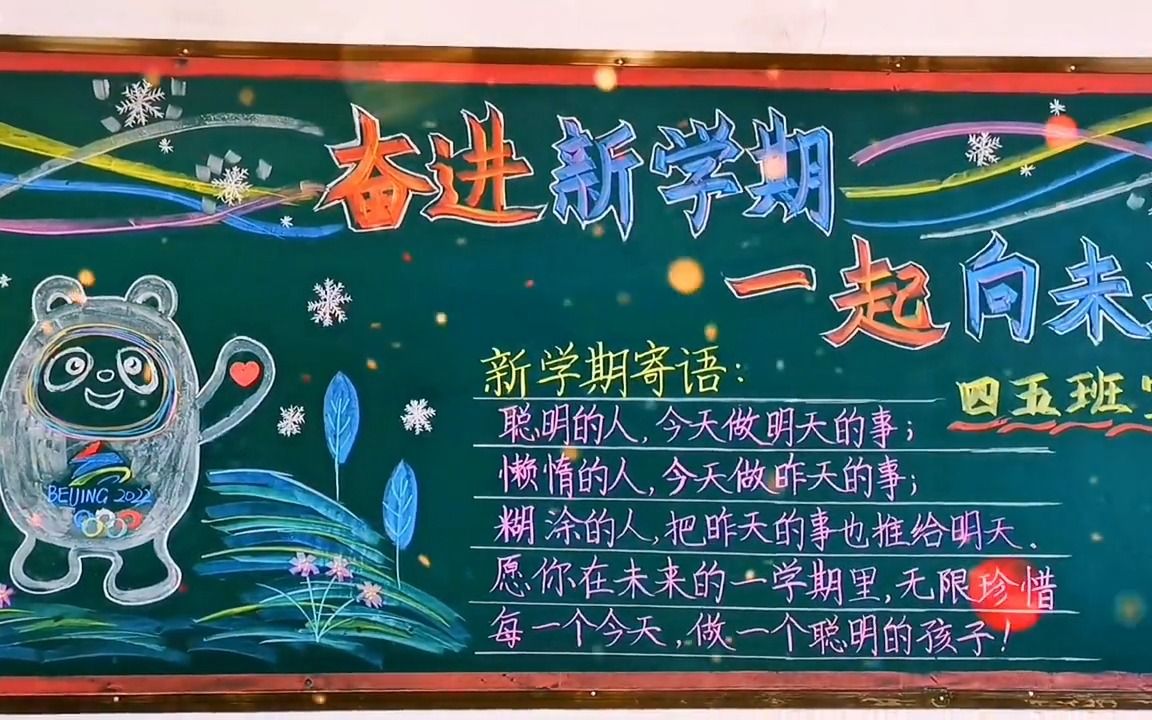 奋进新学期
一起向未
新学期寄语：
四五班
聪明的人，今天做明天的事；
懒惰的人，今天做昨天的事；
糊涂的人，把昨天的事也推给明天。
愿你在未来的一学期里，无限珍惜
每一个今天，做一个聪明的孩子！
BEIJING 2022